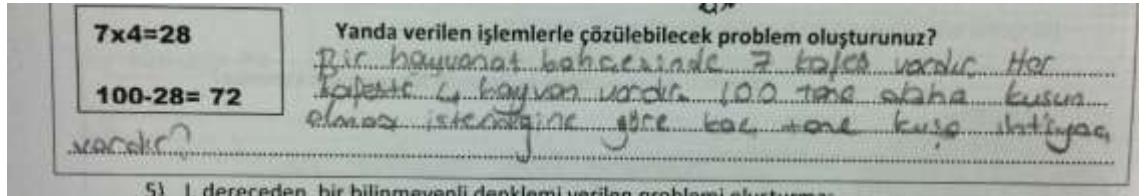 7x4=28
100-28= 72
Yanda verilen işlemlerle çözülebilecek problem oluşturunuz?
Bir hayvanat bahçesinde 7 kafes vardır. Her
kafeste 4 hayvan vardır. 100 tane daha kuşun
olması istendiğine göre kaç tane kuşa ihtiyaç
vardır?
5) I. dereceden bir bilinmeyenli denklemi verilen problemi oluşturma: